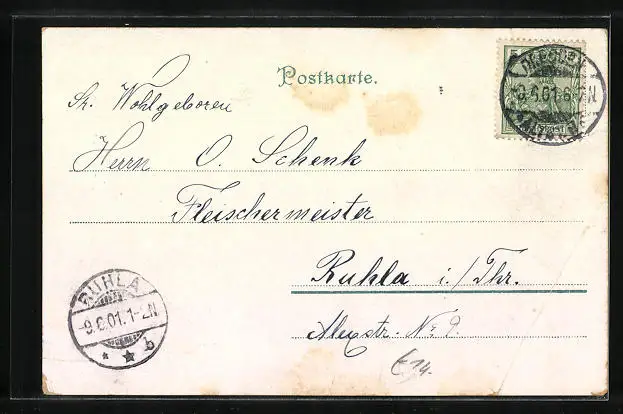 Postkarte.
Sr. Wohlgeboren
Herrn O. Schenk
Fleischermeister
Ruhla i./Thr.
Alexstr. No 9.
RUHLA
-9.6.01.1-2N
* * b
DRESDEN
5
€14.